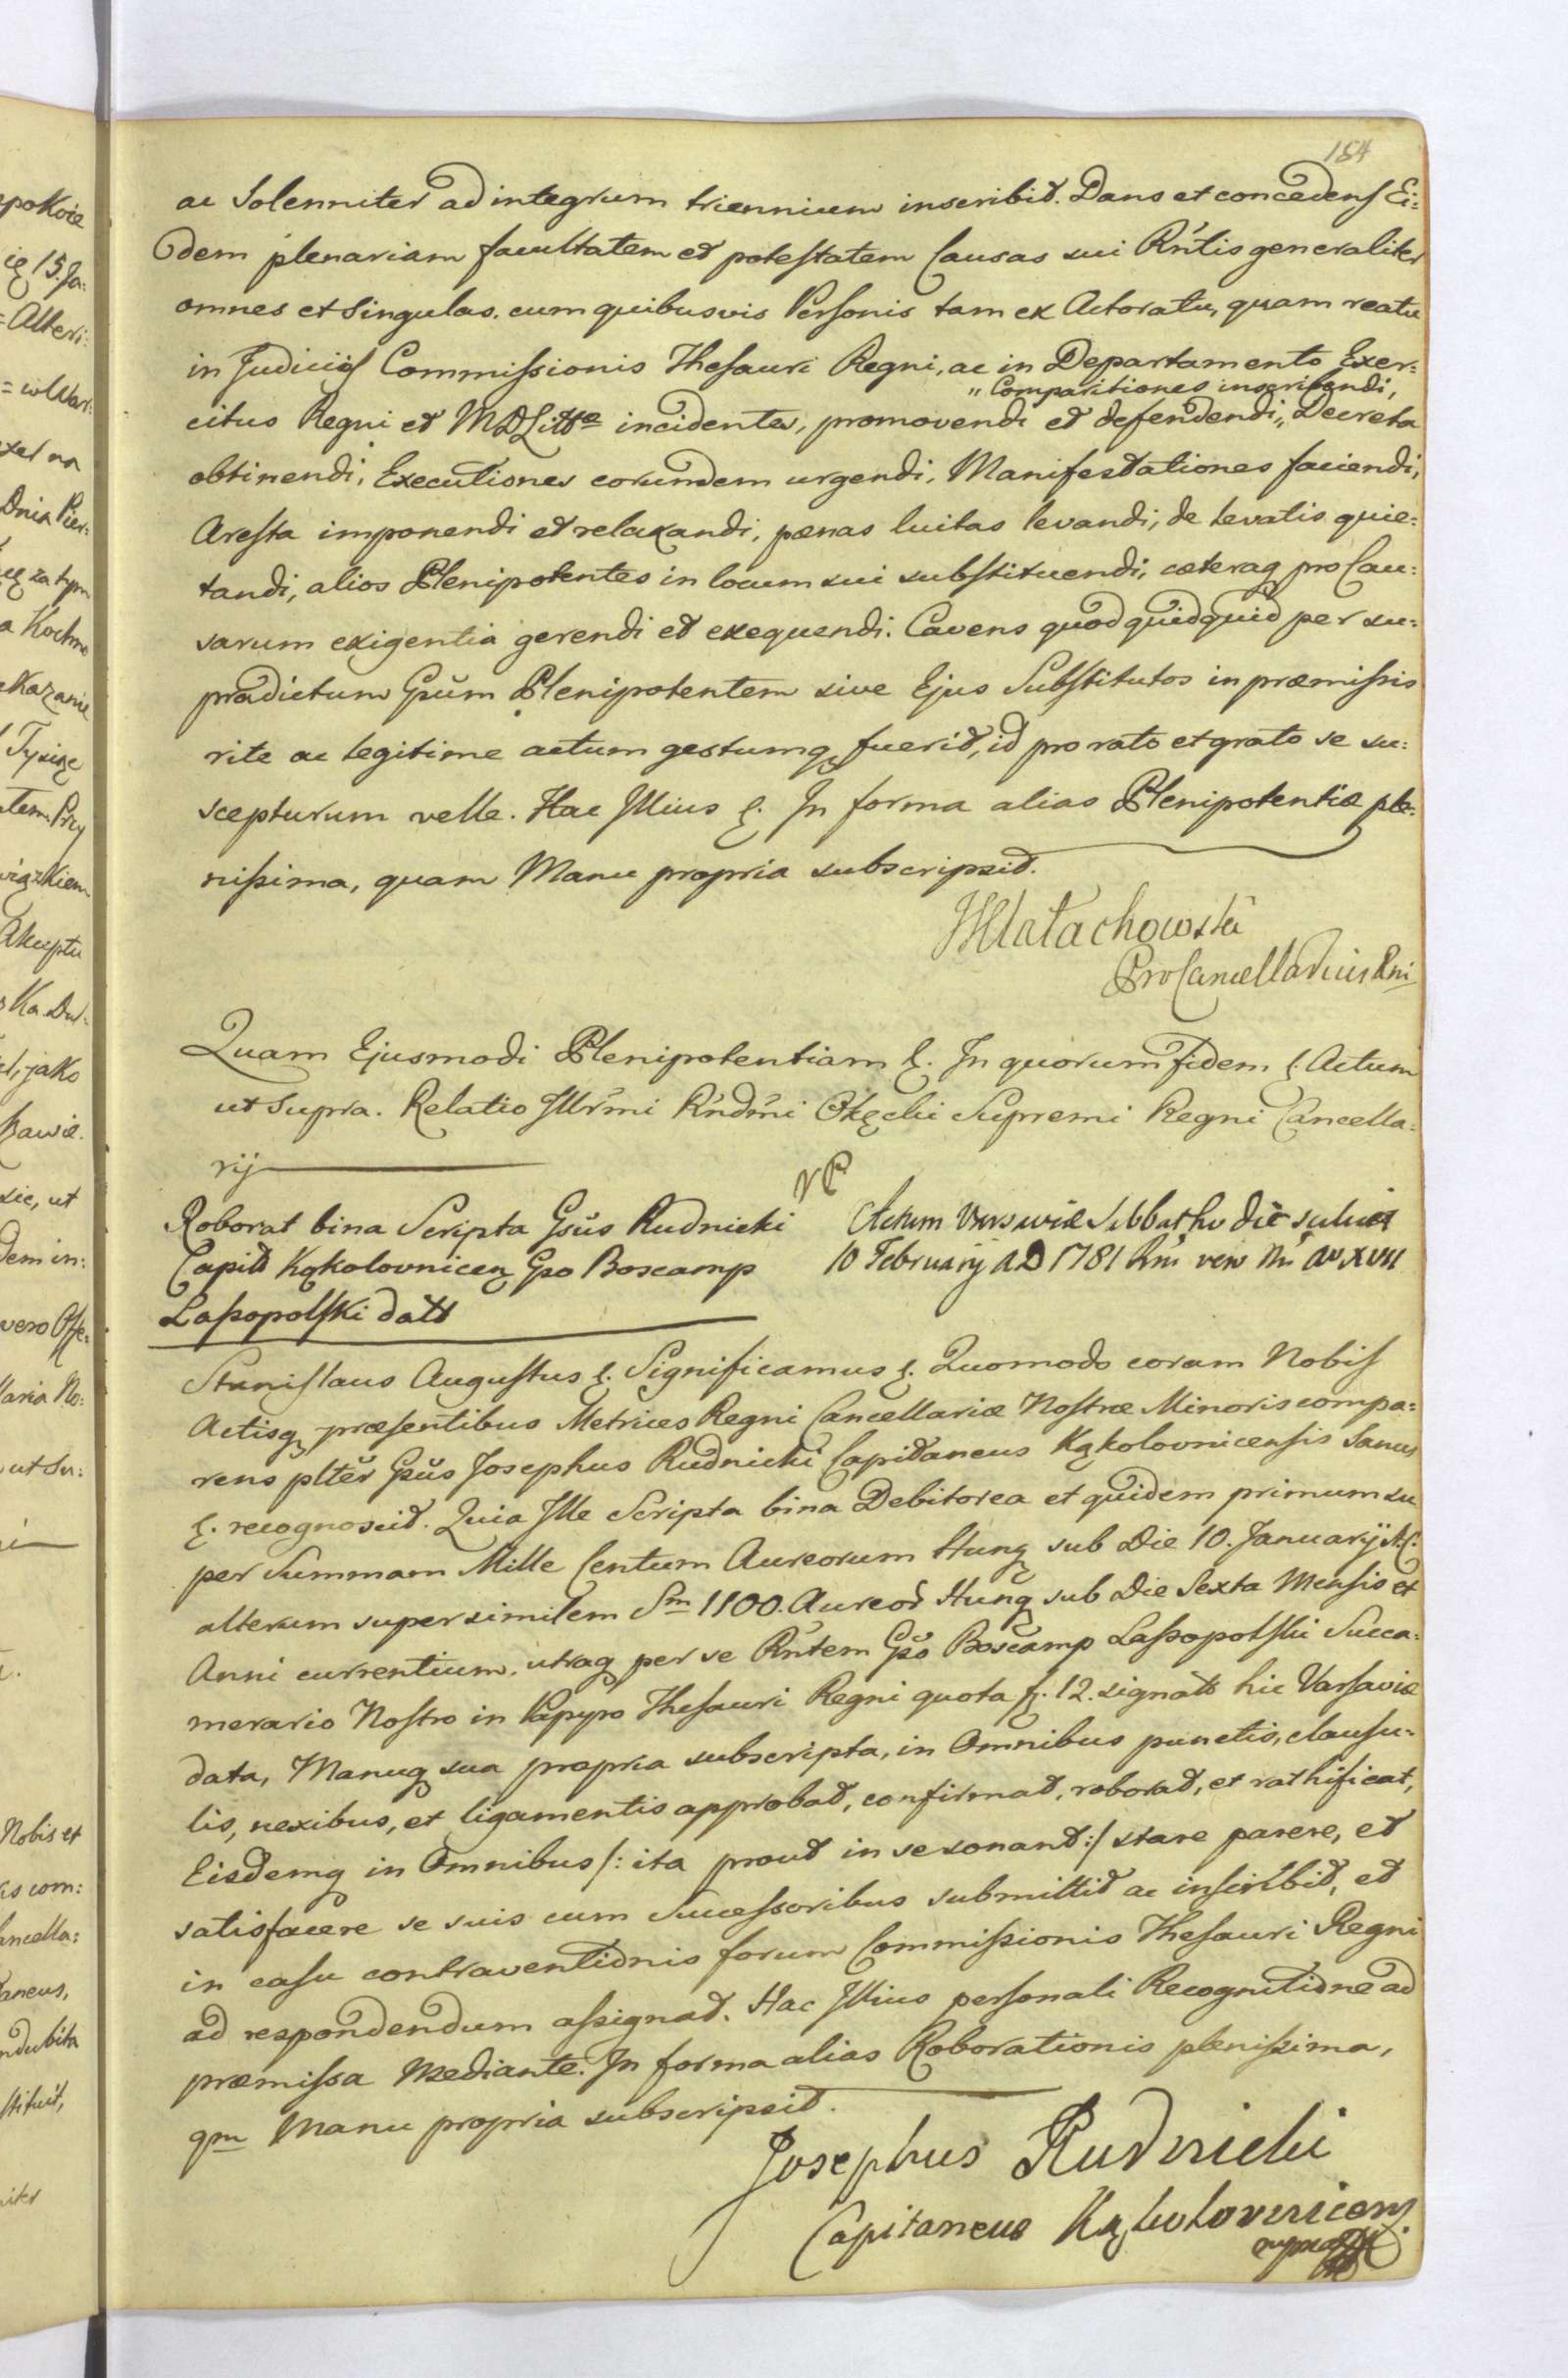 184
ac Solenniter ad integrum triennium inscribit. Dans et concedens Ei:
dem plenariam facultatem et potestatem Causas sui Rñtis generaliter
omnes et singulas cum quibusvis Personis tam ex Actoratu, quam reatu
in Judiciis Commissionis Thesauri Regni, ac in Departamento Exer:
„ Comparitiones inscribendi,
citus Regni et MDLittæ incidentes, promovendi et defendendi, „ Decreta
obtinendi, Executiones eorumdem urgendi, Manifestationes faciendi,
Aresta imponendi et relaxandi, pænas luitas levandi, de levatis quie:
tandi, alios Plenipotentes in locum sui substituendi, cæteraq pro Cau:
sarum exigentia gerendi et exequendi. Cavens quod quidquid per su:
pradictum Gsūm Plenipotentem sive Ejus Substitutos in præmissis
rite ac legitime actum gestumq fuerit, id pro rato et grato se su:
scepturum velle. Hac Illius &. In forma alias Plenipotentiæ ple:
nissima, quam Manu propria subscripsit.
Małachowski
ProCancellarius Rni
Quam Ejusmodi Plenipotentiam &. In quorum fidem &. Actum
ut Supra. Relatio Illr̃mi Rñdm̃i Okęcki Supremi Regni Cancella:
rij
Roborat bina Scripta Gsūs Rudnicki
Capit Kąkolovnicen Gso Boscamp
Lassopolski datt
Actum Varsaviæ Sabbatho die scilicet
10 February AD 1781 Rni vero Nri Ao XVII
Stanislaus Augustus &. Significamus &. Quomodo coram Nobis
Actisq præsentibus Metrices Regni Cancellariæ Nostræ Minoris compa:
rens pltēr Gsūs Josephus Rudnicki Capitaneus Kąkolovnicensis Sanus
&. recognoscit. Quia Ille Scripta bina Debitorea et quidem primum su
per Summam Mille Centum Aureorum Hung sub Die 10. Januarij A.C.
alterum super similem Sm 1100. Aureor Hung sub Die Sexta Mensis et
Anni currentium, utraq per se Rñtem Gso Boscamp Lassopolski Succa:
merario Nostro in Papyro Thesauri Regni quota f. 12. signato hic Varsaviæ
data, Manuq sua propria subscripta, in Omnibus punctis, clausu:
lis, nexibus, et ligamentis approbat, confirmat, roborat, et rathificat,
Eisdemq in Omnibus /: ita prout in se sonant :/ stare parere, et
satisfacere se suis cum Successoribus submittit ac inscribit, et
in casu contraventionis forum Commissionis Thesauri Regni
ad respondendum assignat. Hac Illius personali Recognitione ad
præmissa Mediante. In forma alias Roborationis plenissima,
qm Manu propria subscripsit.
Josephus Rudnicki
Capitaneus Kąkolovnicens